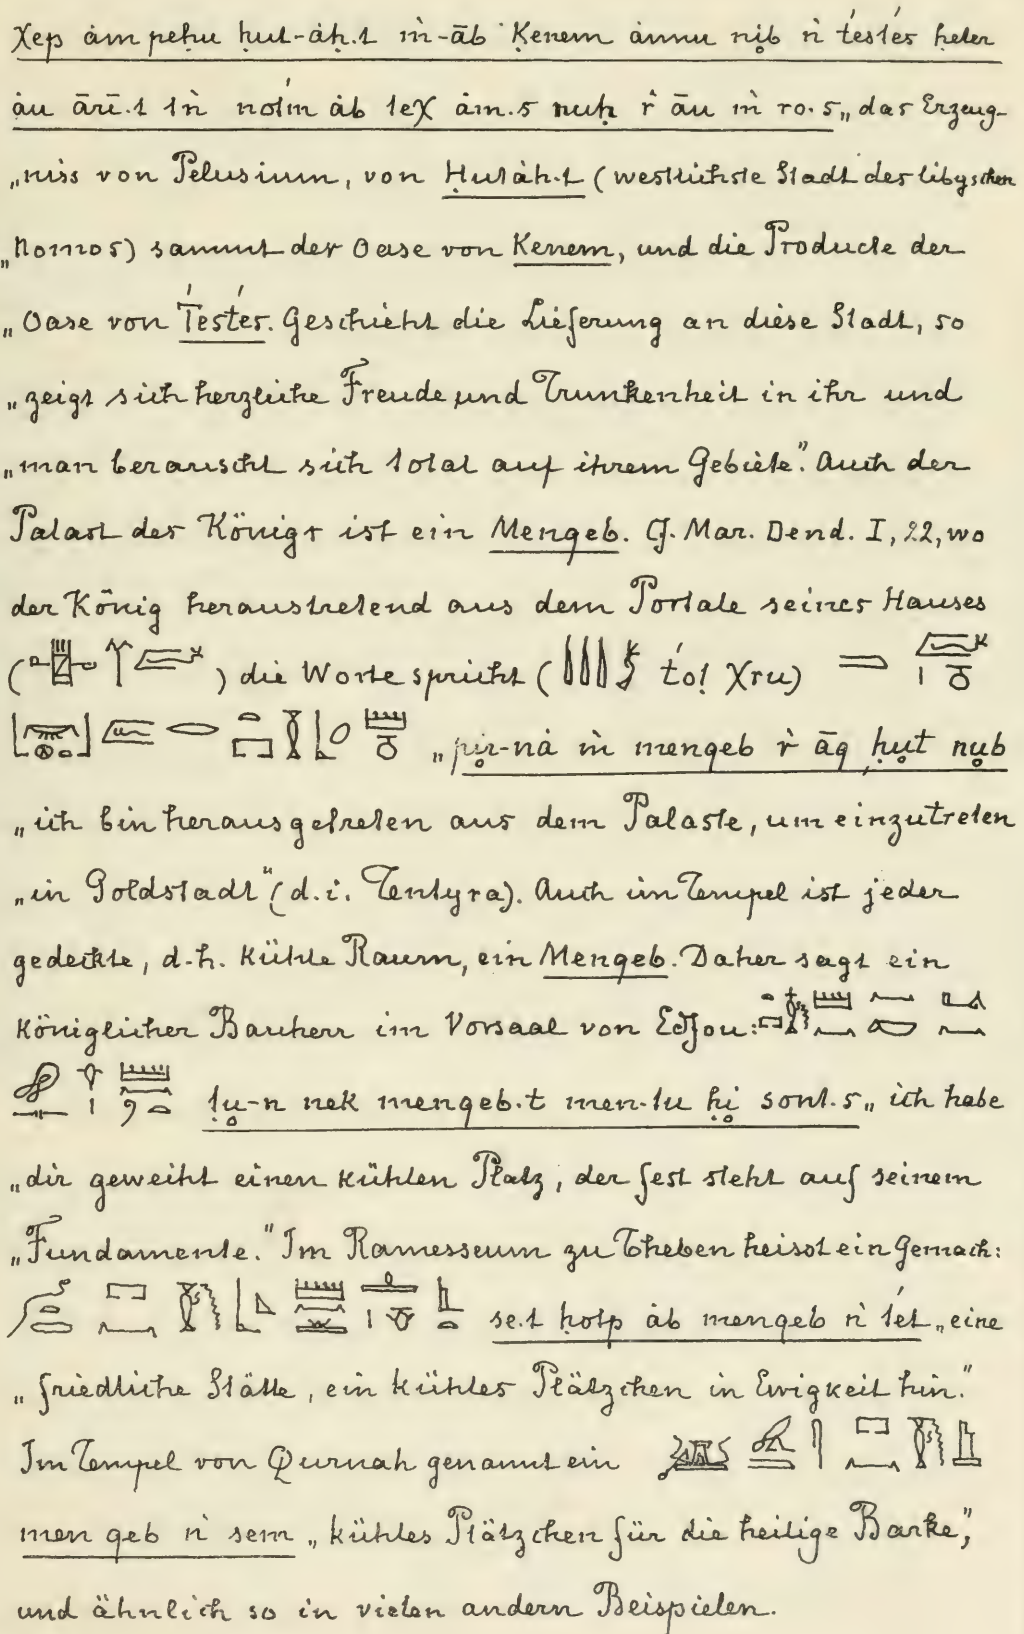 χep àm peḥu ḥut-àḥ.t ṁ-āb Ḳenem ànnu nib ṅ t́est́es ḥeter
àu ārī.t tṅ notm àb teχ àm.s nuḥ ṙ āu ṁ ro.s „das Erzeug-
„niss von Pelusium, von Ḥutàh.t (westlichste Stadt des libyschen
„Nomos) sammt der Oase von Kenem, und die Producte der
„Oase von T́est́es. Geschieht die Lieferung an diese Stadt, so
„zeigt sich herzliche Freude und Trunkenheit in ihr und
„man berauscht sich total auf ihrem Gebiete". Auch der
Palast des Königs ist ein Mengeb. Cf. Mar. Dend. I, 22, wo
der König heraustretend aus dem Portale seines Hauses
( ) die Worte spricht ( t́ot χru)
„pir-nà ṁ mengeb ṙ āq ḥut nub
„ich bin herausgetreten aus dem Palaste, um einzutreten
„in Goldstadt" (d.i. Tentyra). Auch im Tempel ist jeder
gedeckte, d.h. kühle Raum, ein Mengeb. Daher sagt ein
königlicher Bauherr im Vorsaal von Edfou:
ṭu-n nek mengeb.t men-tu ḥi sont.s „ich habe
„dir geweiht einen kühlen Platz, der fest steht auf seinem
„Fundamente." Im Ramesseum zu Theben heisst ein Gemach:
se.t ḥotp àb mengeb ṅ t́et „eine
„friedliche Stätte, ein kühles Plätzchen in Ewigkeit hin."
Im Tempel von Qurnah genannt ein
men geb ṅ sem „kühles Plätzchen für die heilige Barke",
und ähnlich so in vielen andern Beispielen.